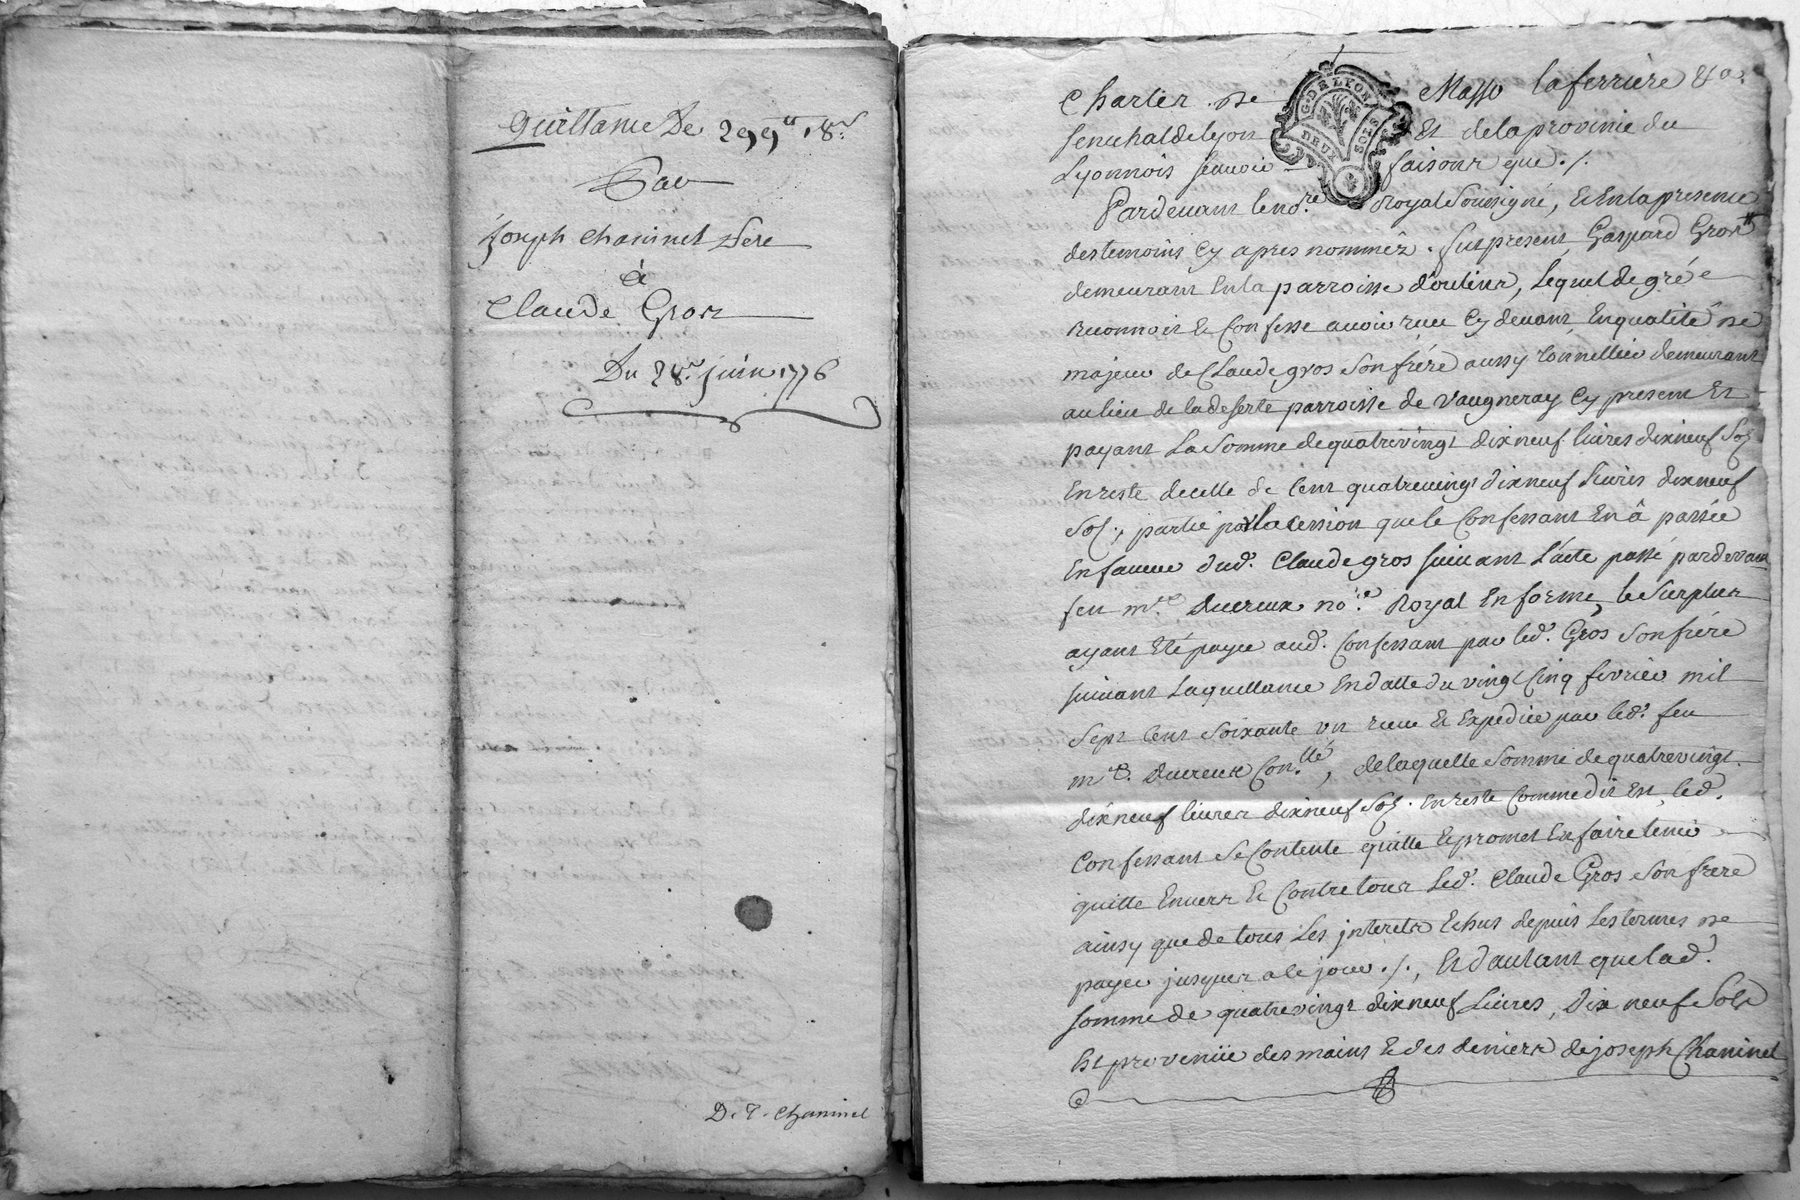 Quittance De 299ᵗᵗ 18ˢ.
Par
Joseph Chaninel Pere
à
Claude Gros
Du 28ᵉ. juin 1776
D. T. Chaninel
Charlier De Masso laferriere &ᵃ.
G. DE LYON
DEUX SOLS
Senechal de Lyon Et de la province du
Lyonnois scavoir faisons que ./.
Pardevant le noʳᵉ Royal Soussigné, Et En la presence
des temoins Cy apres nommés. fut present Gaspard Gros
demeurant En la parroisse d'oulins, Lequel de gré
reconnoit Et Confesse avoir reçu Cy devant En qualité de
majeur de Claude gros Son frére aussy tonnellier demeurant
au lieu de la deserte parroisse de Vaugneray Cy present Et
payant La Somme de quatrevingt dixneuf livres dixneuf Sols
En reste de celle de Cent quatrevingt dixneuf Livres dixneuf
Sols, portée par la Cession que le Confessant En â passée
En faveur dud. Claude gros suivant L'acte passé pardevant
feu mʳᵉ. Ducreux noʳᵉ. Royal En forme, le Surplus
ayant Eté payé aud. Confessant par led. Gros Son frére
suivant La quittance En datte du vingt Cinq fevrier mil
Sept Cent Soixante un reçue Et Expediée par led. feu
mʳᵉ. Ducreux Conᵗˡᵉ, de laquelle Somme de quatrevingt
dixneuf livres dixneuf Sols. En reste Comme dit Est, led.
Confessant Se Contente quitte Et promet En faire tenir
quitte Envers Et Contre tous Led. Claude Gros Son frere
ainsy que de tous Les jnterets Echus depuis Les termes de
payer jusques a ce jour ./., Et d'autant que lad.
somme de quatrevingt dixneuf Livres, Dix neuf Sols
Est provenüe des mains Et des deniers de joseph Chaninel